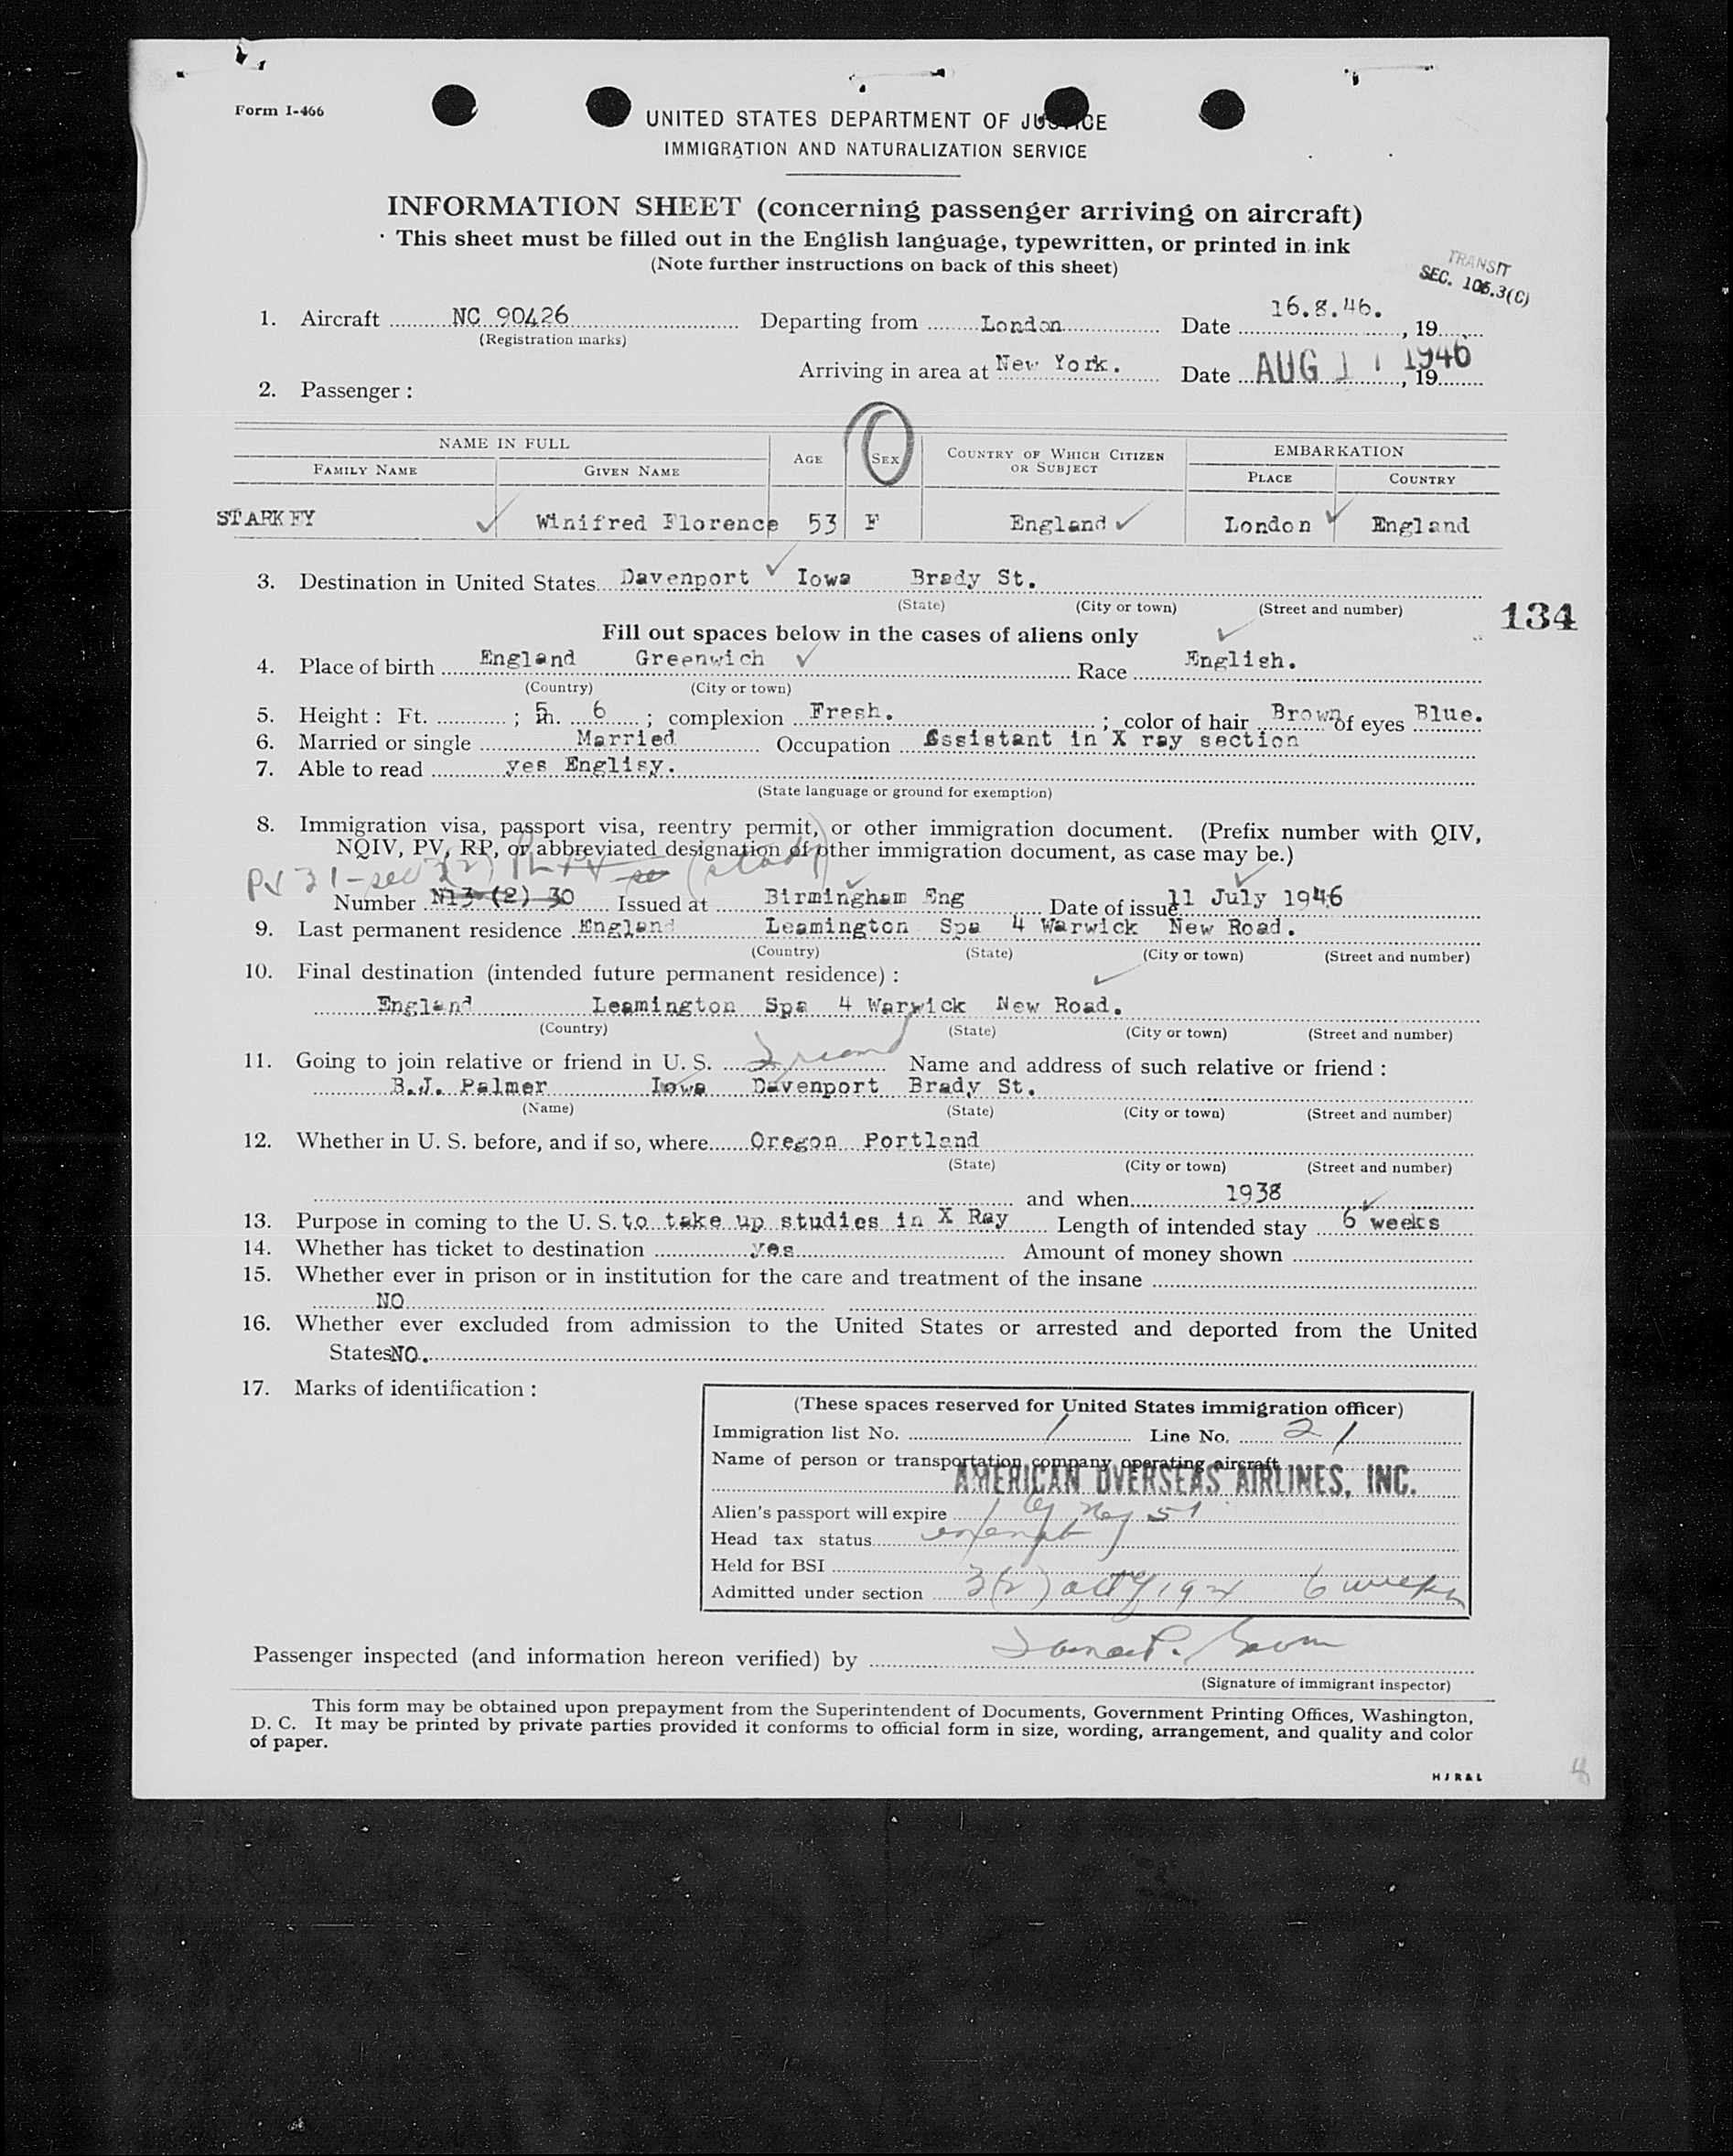 Form I-466
UNITED STATES DEPARTMENT OF JUSTICE
IMMIGRATION AND NATURALIZATION SERVICE
INFORMATION SHEET (concerning passenger arriving on aircraft)
This sheet must be filled out in the English language, typewritten, or printed in ink
(Note further instructions on back of this sheet)
TRANSIT
SEC. 105.3(C)
1. Aircraft NC 90426 Departing from London Date 16.8.46. , 19
(Registration marks)
Arriving in area at New York. Date AUG 1 1946 , 19
2. Passenger :
NAME IN FULL AGE SEX COUNTRY OF WHICH CITIZEN OR SUBJECT EMBARKATION
FAMILY NAME GIVEN NAME PLACE COUNTRY
Winifred Florence 53 F England London England
3. Destination in United States Davenport Iowa Brady St.
(State) (City or town) (Street and number)
134
Fill out spaces below in the cases of aliens only
4. Place of birth England Greenwich Race English.
(Country) (City or town)
5. Height : Ft. ; 5 in. 6 ; complexion Fresh. ; color of hair Brown of eyes Blue.
6. Married or single Married Occupation Assistant in X ray section
7. Able to read yes Englisy.
(State language or ground for exemption)
8. Immigration visa, passport visa, reentry permit, or other immigration document. (Prefix number with QIV,
NQIV, PV, RP, or abbreviated designation of other immigration document, as case may be.)
PV 31-sec 3(2) (study)
Number N13 (2) 30 Issued at Birmingham Eng Date of issue 11 July 1946
9. Last permanent residence England Leamington Spa 4 Warwick New Road.
(Country) (State) (City or town) (Street and number)
10. Final destination (intended future permanent residence) :
England Leamington Spa 4 Warwick New Road.
(Country) (State) (City or town) (Street and number)
11. Going to join relative or friend in U. S. Friend Name and address of such relative or friend :
B.J. Palmer Iowa Davenport Brady St.
(Name) (State) (City or town) (Street and number)
12. Whether in U. S. before, and if so, where Oregon Portland
(State) (City or town) (Street and number)
and when 1938
13. Purpose in coming to the U. S. to take up studies in X Ray Length of intended stay 6 weeks
14. Whether has ticket to destination yes Amount of money shown
15. Whether ever in prison or in institution for the care and treatment of the insane
NO
16. Whether ever excluded from admission to the United States or arrested and deported from the United
States NO.
17. Marks of identification :
(These spaces reserved for United States immigration officer)
Immigration list No. 1 Line No. 21
Name of person or transportation company operating aircraft
AMERICAN OVERSEAS AIRLINES, INC.
Alien's passport will expire 51
Head tax status exempt
Held for BSI
Admitted under section 3(2) act of 1924 6 weeks
Passenger inspected (and information hereon verified) by
(Signature of immigrant inspector)
This form may be obtained upon prepayment from the Superintendent of Documents, Government Printing Offices, Washington,
D. C. It may be printed by private parties provided it conforms to official form in size, wording, arrangement, and quality and color
of paper.
H J R & L